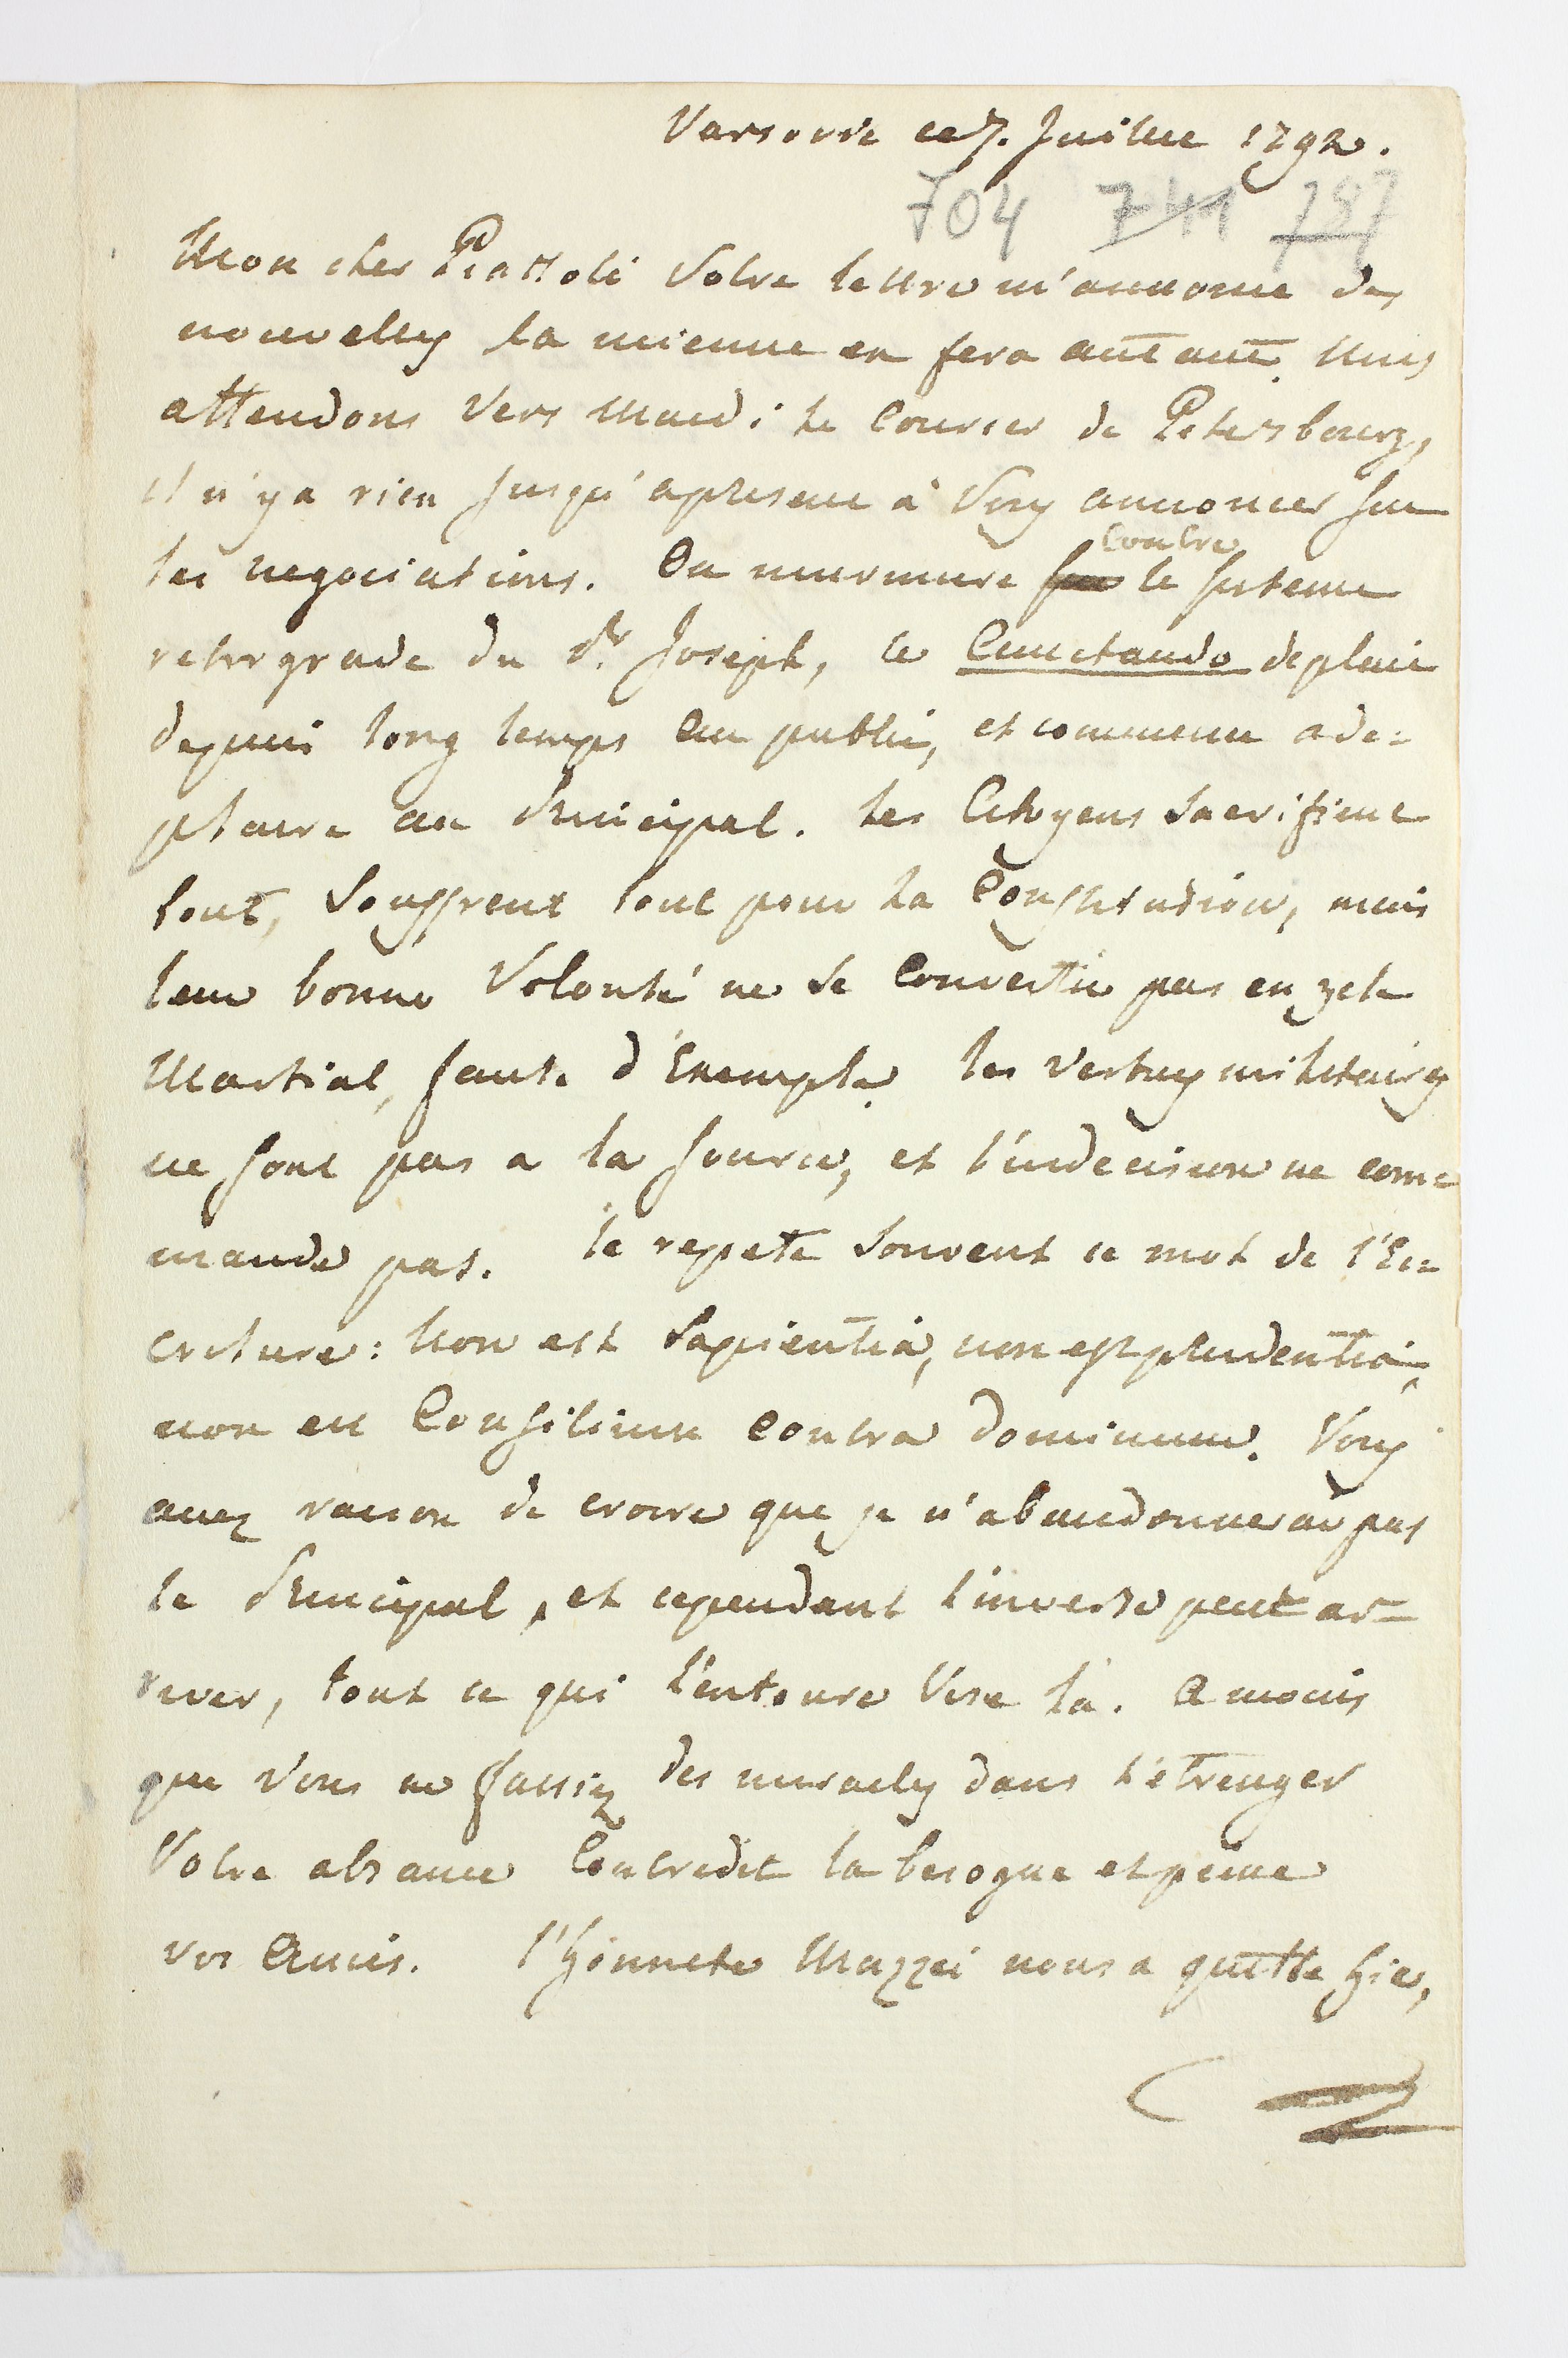 Varsovie ce 7. Juillet 1792.
704 741 787
Mon cher Piattoli Votre lettre m'annonce des
nouvelles la mienne en fera autant. Nous
attendons Vers Mardi le Courier de Petersbourg,
il n'y a rien jusqu'apresent à Vous annoncer sur
les negociations. On murmure sur contre le sisteme
retrograde du Pr Joseph, le Cunctando deplait
depuis long temps au public, et commence a de=
plaire au Principal. les Citoyens Sacrifient
tout, Souffrent tout pour la Constitution, mais
leur bonne Volonté ne se Convertit pas en zele
Martial, faute d'Exemple. les Vertus militaires
ne sont pas a la source, et l'indecision ne com=
mande pas. Je repete Souvent ce mot de l'Ec=
criture: Non est Sapientia, non est prudentia,
non est Consilium Contra dominum. Vous
avez raison de croire que je n'abandonnerai pas
le Principal, et cependant l'inverse peut ar=
river, tout ce qui l'entoure Vise là. a moins
que Vous ne fassiez des miracles dans l'étranger
Votre absance Contredit la besogne et peine
vos Amis. l'Honnete Mazzei nous a quitté hier,